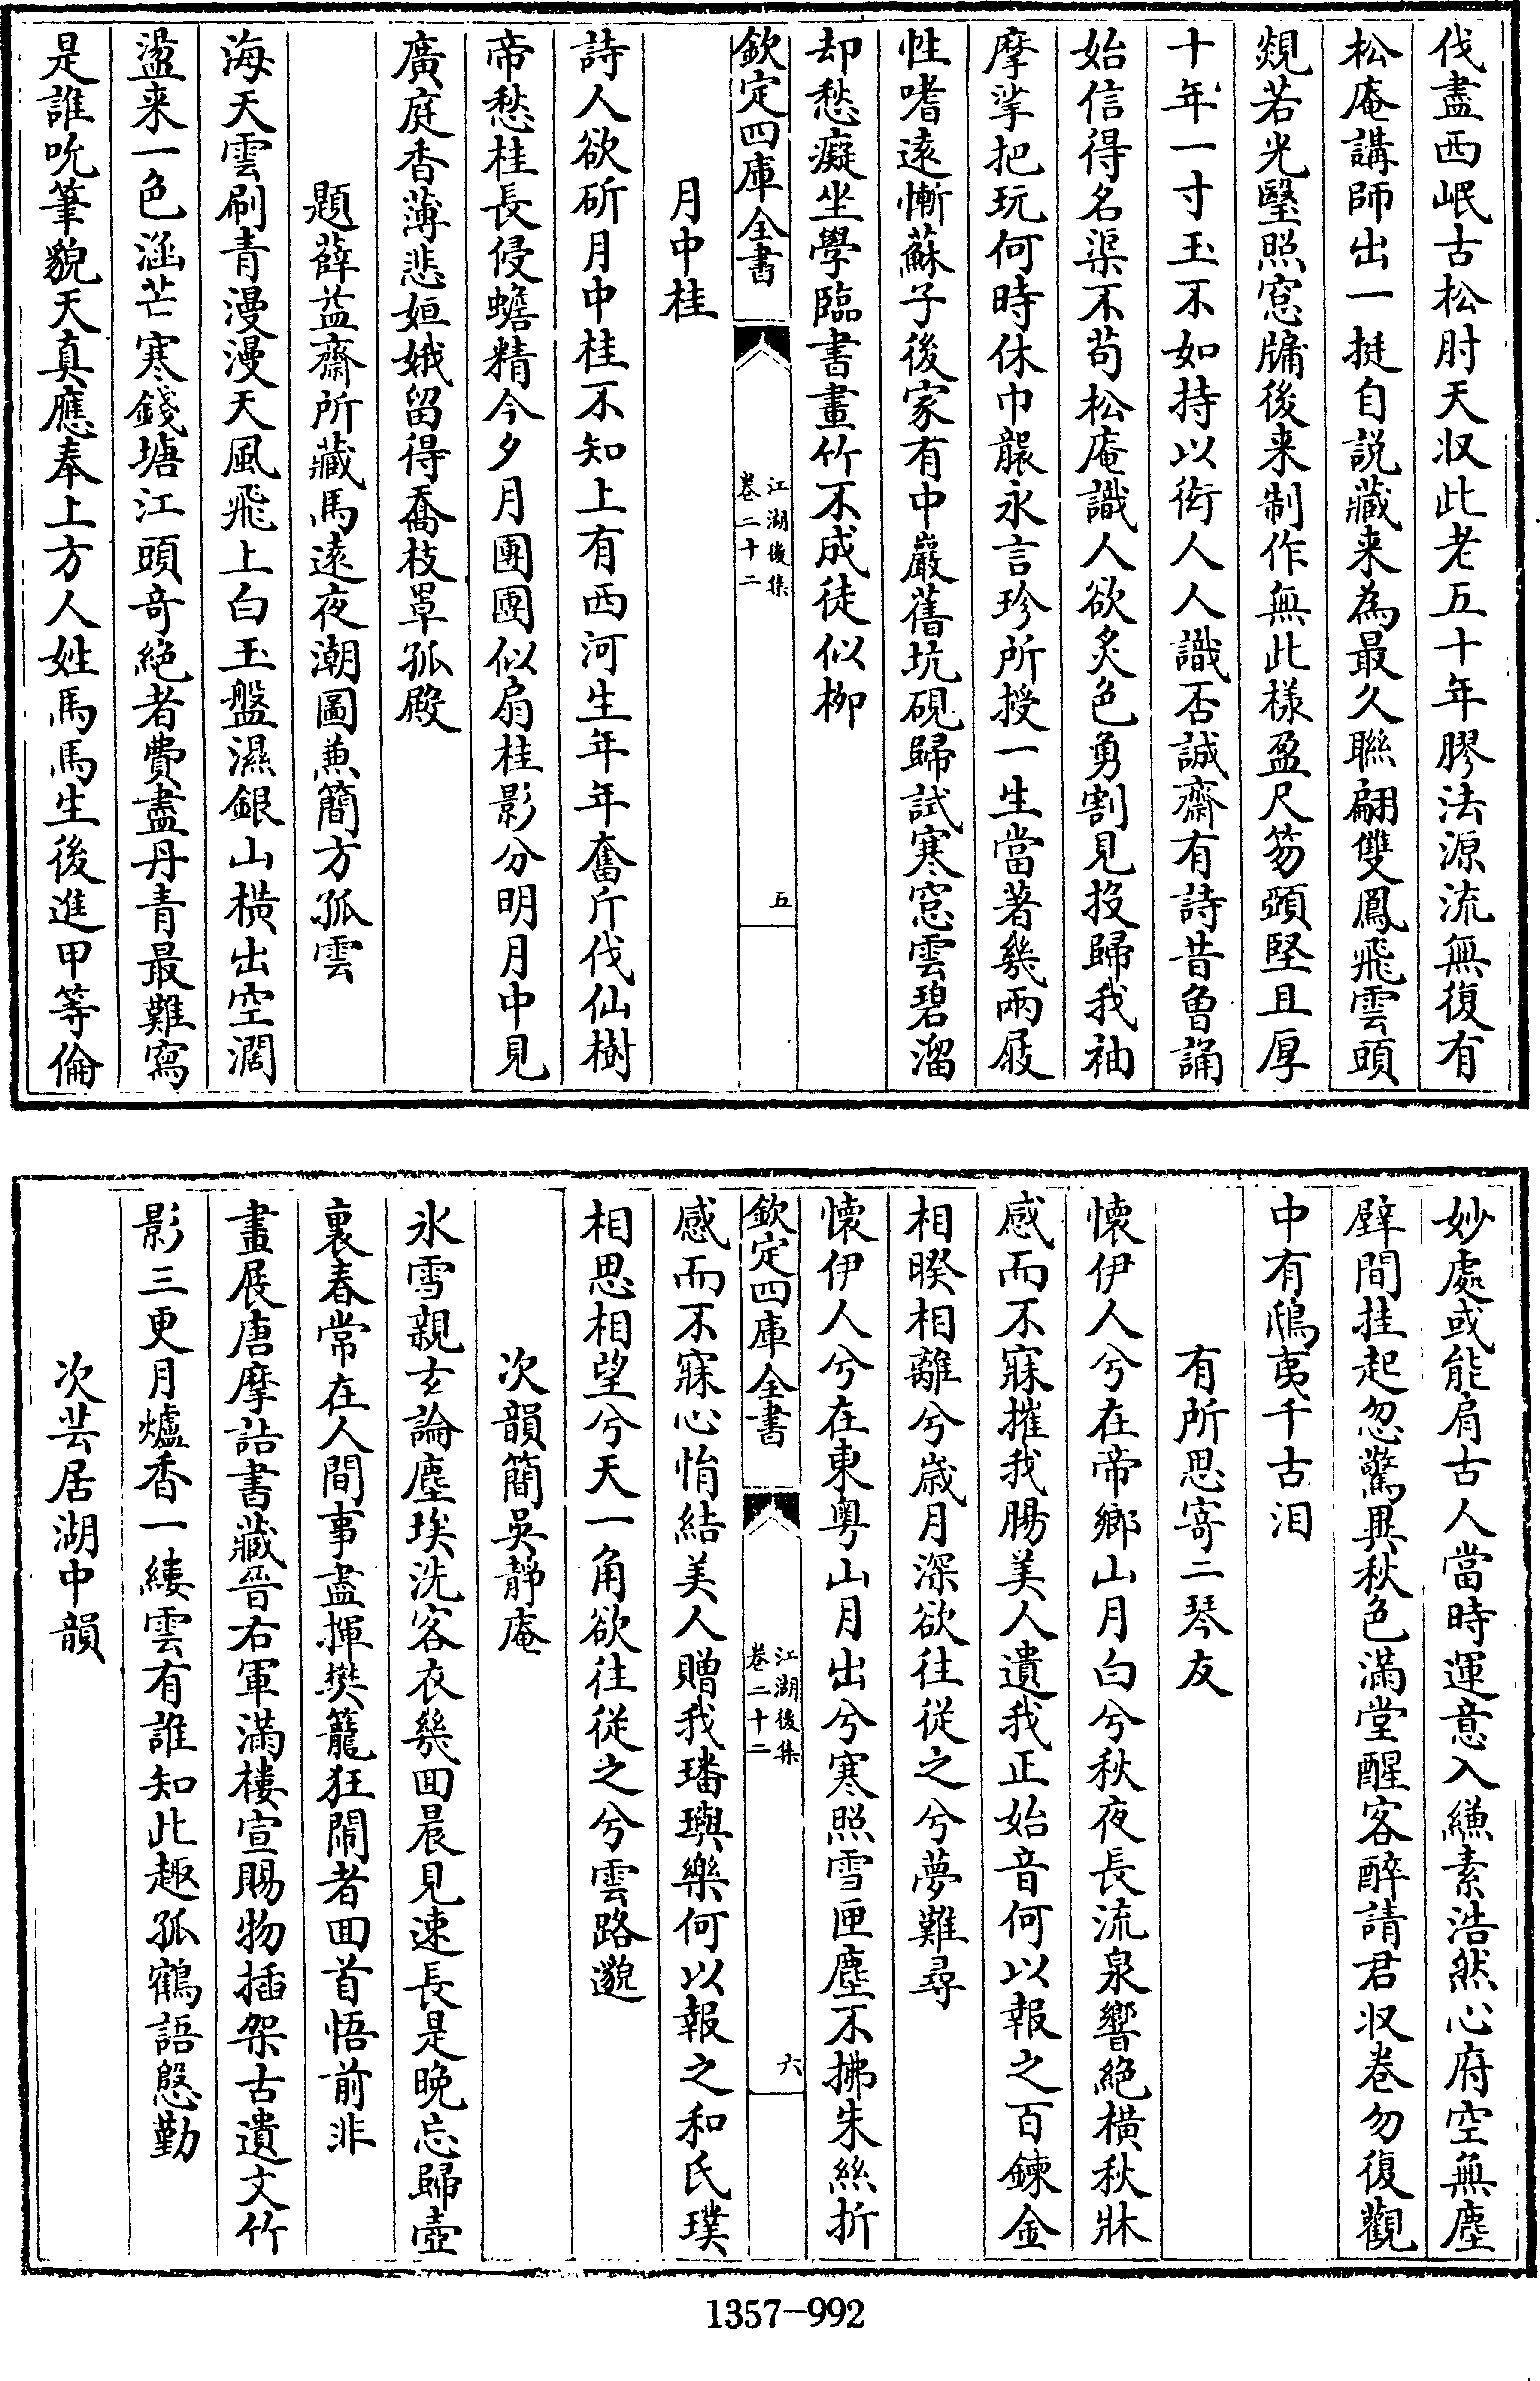 伐盡西岷古松肘天収此老五十年膠法源流無復有
松庵講師出一挺自説藏来為最久聯翩雙鳳飛雲頭
覢若光瑿照窓牖後来制作無此樣盈尺笏頭堅且厚
十年一寸玉不如持以衒人人識否誠齋有詩昔魯誦
始信得名渠不苟松庵識人欲炙色勇割見投歸我袖
摩挲把玩何時休巾襲永言珍所授一生當著幾兩屐
性嗜遠慚蘇子後家有中巖舊坑硯歸試寒窓雲碧溜
却愁癡坐學臨書畫竹不成徒似柳
欽定四庫全書
江湖後集
卷二十二
五
月中桂
詩人欲斫月中桂不知上有西河生年年奮斤伐仙樹
帝愁桂長侵蟾精今夕月團團似扇桂影分明月中見
廣庭香薄悲姮娥留得喬枝罩孤殿
題薛益齋所藏馬遠夜潮圖兼簡方孤雲
海天雲刷青漫漫天風飛上白玉盤濕銀山橫出空濶
盪来一色涵芒寒錢塘江頭奇絕者費盡丹青最難寫
是誰吮筆貌天真應奉上方人姓馬馬生後進甲等倫
妙處或能肩古人當時運意入縑素浩然心府空無塵
壁間挂起忽驚異秋色滿堂醒客醉請君収卷勿復觀
中有鴟夷千古泪
有所思寄二琴友
懷伊人兮在帝鄉山月白兮秋夜長流泉響絕橫秋牀
感而不寐摧我腸美人遺我正始音何以報之百鍊金
相暌相離兮歲月深欲往從之兮夢難尋
懷伊人兮在東粵山月出兮寒照雪匣塵不拂朱絲折
欽定四庫全書
江湖後集
卷二十二
六
感而不寐心悁結美人贈我璠璵樂何以報之和氏璞
相思相望兮天一角欲往從之兮雲路邈
次韻簡吳靜庵
氷雪親玄論塵埃洗客衣幾囬晨見速長是晚忘歸壺
裏春常在人間事盡揮樊籠狂閙者囬首悟前非
畫展唐摩詰書藏晉右軍滿樓宣賜物插架古遺文竹
影三更月爐香一縷雲有誰知此趣孤鶴語慇勤
次芸居湖中韻
1357-992